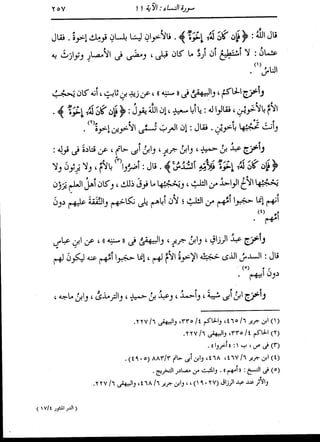 سورة النساء : الآية ١١
٢٥٧
قال الله : ﴿ فَإِن كَانَ لَهُۥٓ إِخْوَةٌ ﴾ . فالأخوان ليسا بلسان قومك إخوة . فقال
عثمان : لا أستطيع أن أرُدَّ ما كان قبلى ، ومضَى فى الأمصارِ وتوارَث به
الناس (١) .
وأخرَج الحاكمُ ، والبيهقىُّ فى « سننِه » ، عن زيدِ بنِ ثابتٍ ، أنه كان يحجُبُ
الأمَّ بالأخوين ، فقالوا له : يا أبا سعيدٍ ، إن الله يقولُ : ﴿ فَإِن كَانَ لَهُۥٓ إِخْوَةٌ ﴾ .
وأنت تحجُبُها بأخوين . فقال : إن العربَ تُسمِّى الأخوين إخوةً (٢) .
وأخرَج عبدُ بنُ حميدٍ ، وابنُ جريرٍ ، وابنُ أبى حاتمٍ ، عن قتادةَ فى قولِه :
﴿ فَإِن كَانَ لَهُۥٓ إِخْوَةٌ فَلِأُمِّهِ ٱلسُّدُسُ ﴾ . قال : أضرُّوا (٣) بالأمِّ ، ولا يرِثون ، ولا
يحجُبُها الأخُ الواحدُ من الثلثِ ، ويحجُبُها ما فوقَ ذلك ، وكان أهلُ العلمِ يَرون
أنهم إنما حجَبوا أمَّهم من الثلثِ ؛ لأن أباهم يلى نكاحَهم والنفقةَ عليهم دونَ
أمِّهم (٤) .
وأخرَج عبدُ الرزاقِ ، وابنُ جريرٍ ، والبيهقىُّ فى « سننِه » ، عن ابنِ عباسٍ
قال : السدسُ الذى حجَبته الإخوةُ الأمَّ لهم ، إنما حجَبوا أمَّهم عنه ليكونَ لهم
دونَ أبيهم (٥) .
وأخرَج ابنُ أبى شيبةَ ، وأحمدُ ، وعبدُ بنُ حميدٍ ، والترمذىُّ ، وابنُ ماجه ،
(١) ابن جرير ٦/ ٤٦٥ ، والحاكم ٤/ ٣٣٥ ، والبيهقى ٦/ ٢٢٧ .
(٢) الحاكم ٤/ ٣٣٥ ، والبيهقى ٦/ ٢٢٧ .
(٣) فى ص ، ف ١ :
(٤) ابن جرير ٦/ ٤٦٧ ، ٤٦٨ ، وابن أبى حاتم ٣/ ٨٨٣ (٤٩٠٥) .
(٥) فى النسخ : « أمهم » . والمثبت من مصادر التخريج .
والأثر عند عبد الرزاق (١٩٠٢٧) ، وابن جرير ٦/ ٤٦٨ ، والبيهقى ٦/ ٢٢٧ .
( الدر المنثور ٤/ ١٧ )